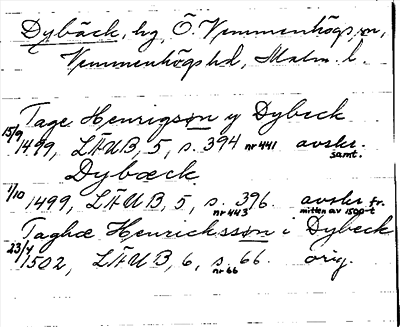 Dybäck, hg, Ö. Vemmenhögs sn,
Vemmenhögs hd, Malm. l.
Tage Henrigsøn y Dybeck
15/9 1499, LÄUB, 5, s. 394 nr 441 avskr. samt.
Dybæck
1/10 1499, LÄUB, 5, s. 396. nr 443 avskr fr. mitten av 1500-t
Taghæ Henrickssøn i Dybeck
23/4 1502, LÄUB, 6, s. 66. nr 66 orig.